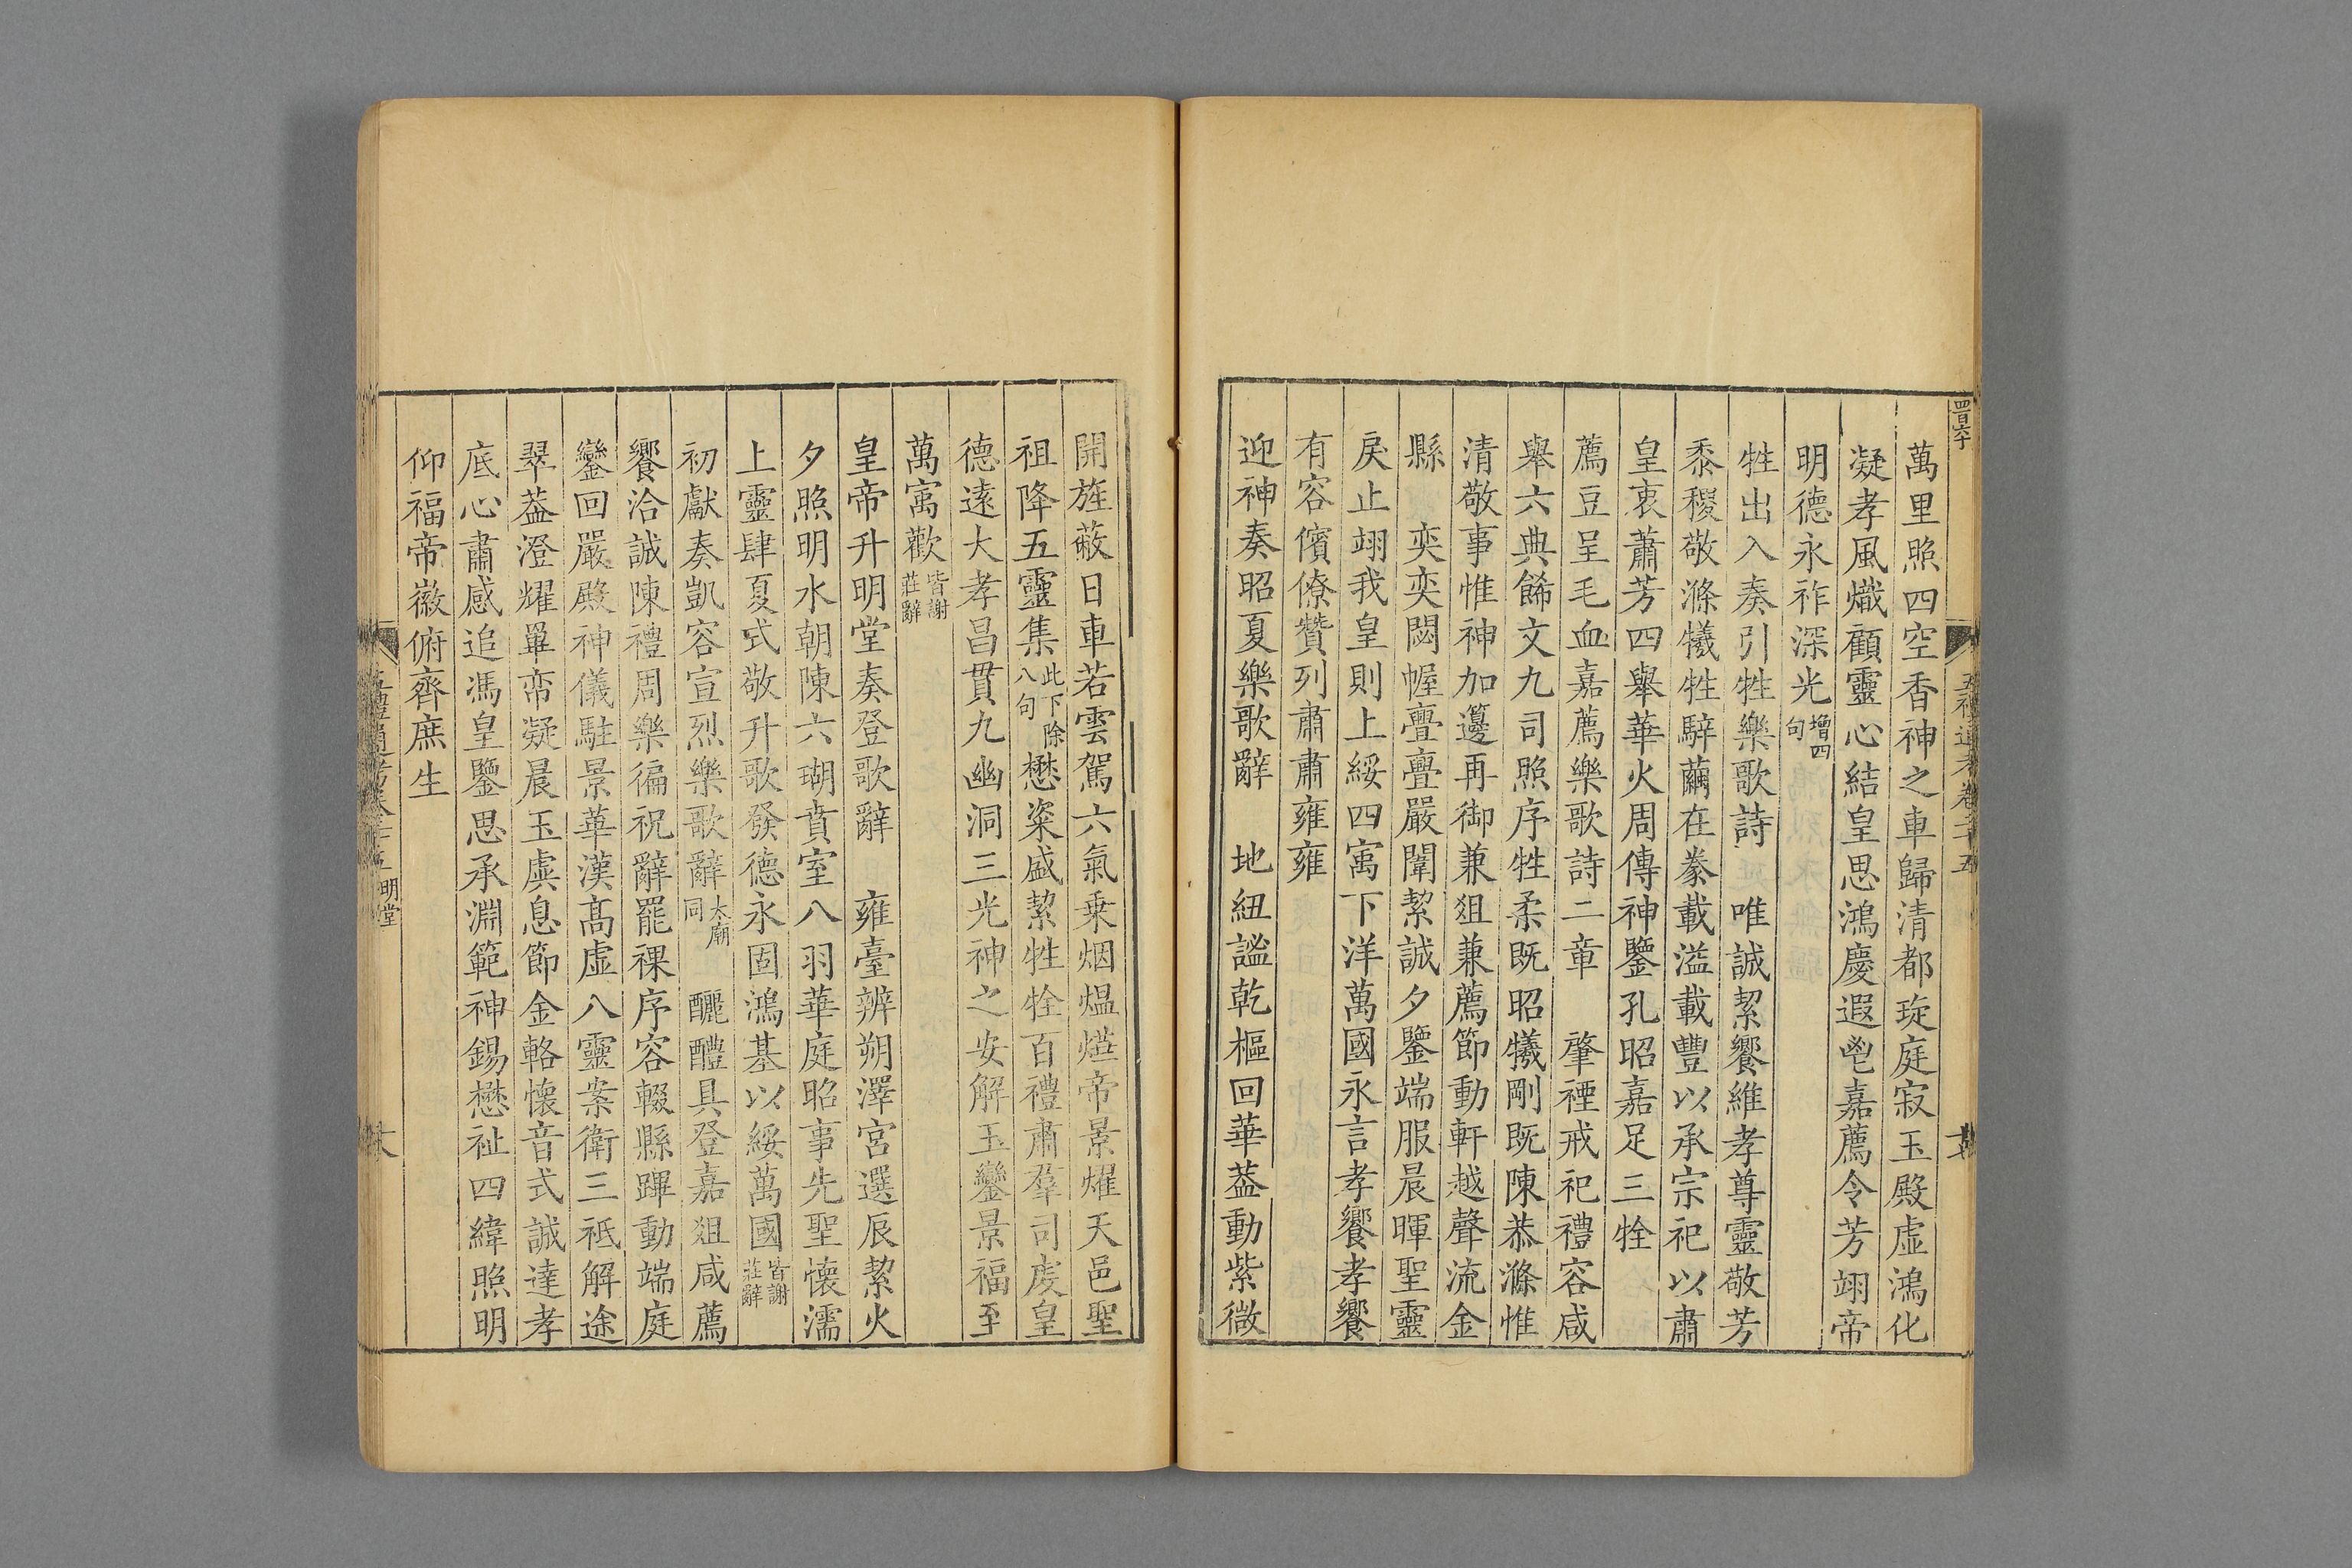 萬里照四空香神之車歸清都琁庭寂玉殿虛鴻化
凝孝風熾顧靈心結皇思鴻慶遐鬯嘉薦令芳翊帝
明德永祚深光增四句
牲出入奏引牲樂歌詩　唯誠絜饗維孝尊靈敬芳
黍稷敬滌犧牲騂繭在豢載溢載豐以承宗祀以肅
皇衷蕭芳四舉華火周傳神鑒孔昭嘉足三牷
薦豆呈毛血嘉薦樂歌詩二章　肇禋戒祀禮容咸
舉六典餙文九司照序牲柔既昭犧剛既陳恭滌惟
清敬事惟神加籩再御兼俎兼薦節動軒越聲流金
縣　奕奕閟幄亹亹嚴闈絜誠夕鑒端服晨暉聖靈
戾止翊我皇則上綏四㝢下洋萬國永言孝饗孝饗
有容儐僚贊列肅肅雍雍
迎神奏昭夏樂歌辭　地紐謐乾樞回華葢動紫微
開旌蔽日車若雲駕六氣乗烟熅爓帝景燿天邑聖
祖降五靈集此下除八句懋粢盛絜牲牷百禮肅羣司䖍皇
德遠大孝昌貫九幽洞三光神之安解玉鑾景福至
萬㝢歡皆謝莊辭
皇帝升明堂奏登歌辭　雍臺辨朔澤宮選辰絜火
夕照明水朝陳六瑚賁室八羽華庭昭事先聖懷濡
上靈肆夏式敬升歌發德永固鴻基以綏萬國皆謝莊辭
初獻奏凱容宣烈樂歌辭太廟同　釃醴具登嘉俎咸薦
饗洽誠陳禮周樂徧祝辭罷祼序容輟縣蹕動端庭
鑾回嚴殿神儀駐景華漢髙虛八靈案衛三祗解途
翠葢澄燿罼帟凝晨玉虡息節金輅懷音式誠達孝
底心肅感追馮皇鑒思承淵範神錫懋祉四緯照明
仰福帝徽俯齊庶生
五禮通考卷二十五
五禮通考卷二十五
明堂